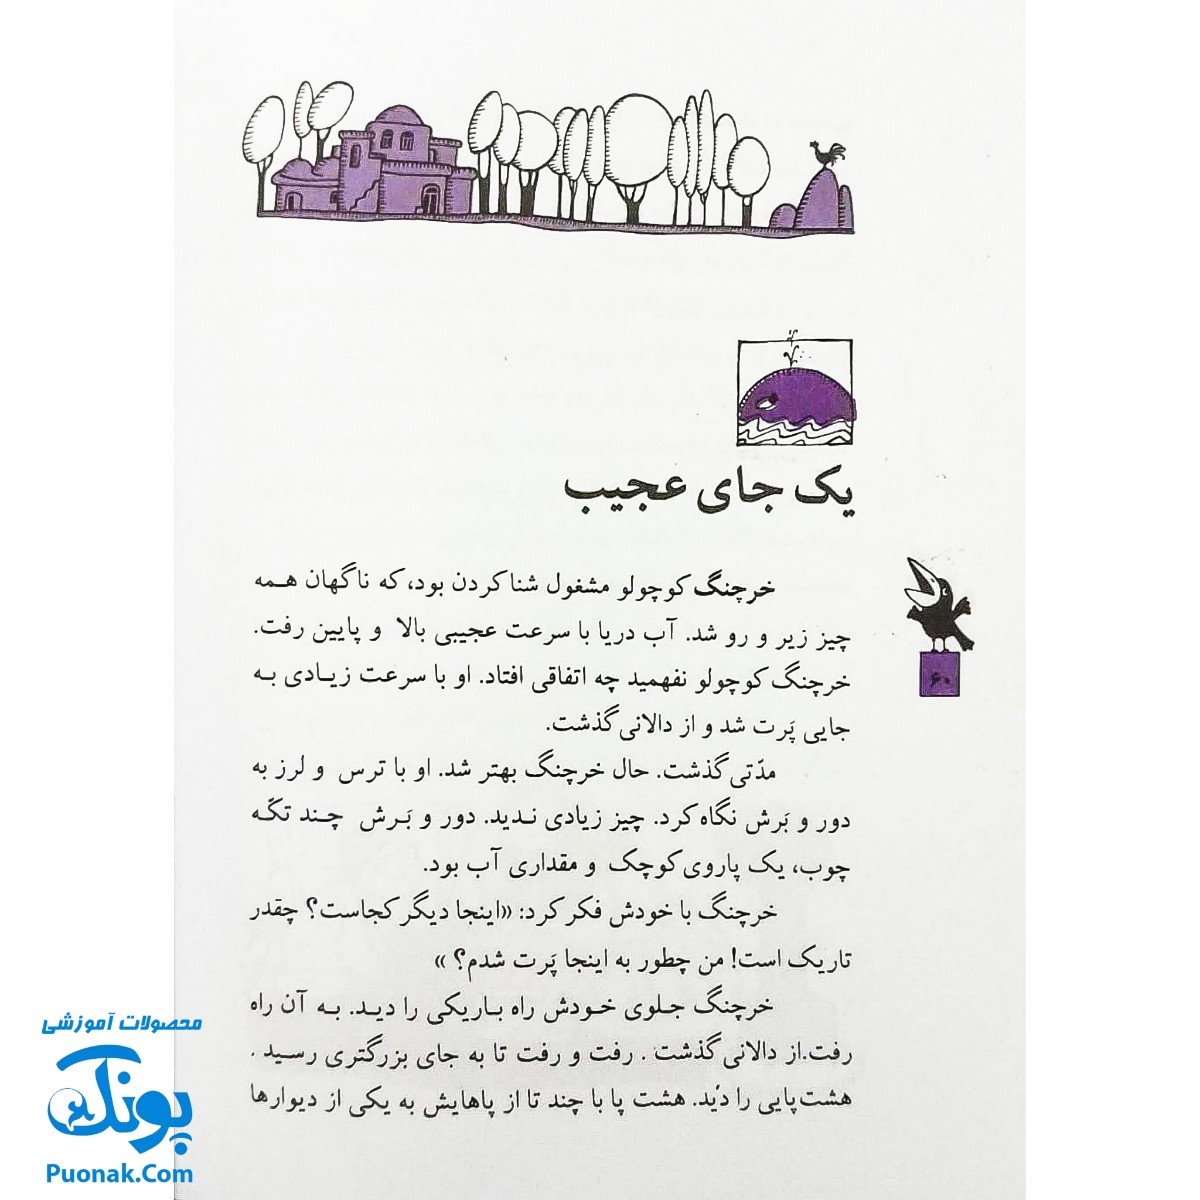 یک جای عجیب
خرچنگ کوچولو مشغول شنا کردن بود، که ناگهان همه
چیز زیر و رو شد. آب دریا با سرعت عجیبی بالا و پایین رفت.
خرچنگ کوچولو نفهمید چه اتفاقی افتاد. او با سرعت زیادی به
جایی پَرت شد و از دالانی گذشت.
مدّتی گذشت. حال خرچنگ بهتر شد. او با ترس و لرز به
دور و بَرش نگاه کرد. چیز زیادی ندید. دور و بَرش چند تکّه
چوب، یک پاروی کوچک و مقداری آب بود.
خرچنگ با خودش فکر کرد: «اینجا دیگر کجاست؟ چقدر
تاریک است! من چطور به اینجا پَرت شدم؟ »
خرچنگ جلوی خودش راه باریکی را دید. به آن راه
رفت. از دالانی گذشت . رفت و رفت تا به جای بزرگتری رسید .
هشت‌پایی را دید. هشت پا با چند تا از پاهایش به یکی از دیوارها
۶۰
محصولات آموزشی
پونک
Puonak.Com